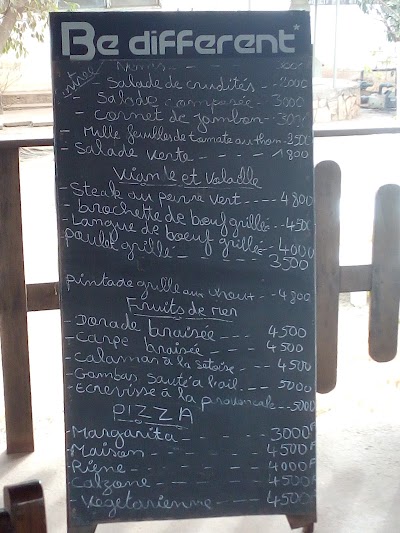 Be different*
Entrée
Salade de crudités -- 2000
- Salade composée -- 3000
- Cornet de jambon - 300
- Mille feuilles de tomate au thon - 350
- Salade verte - - - - - 1800
Viande et Volaille
- Steak au poivre vert ---- 4800
- brochette de bœuf grillée -- 450
- Langue de boeuf grillée -- 4000
poulet grillé - - - - - 3500
pintade grillé aux - - - 4800
Fruits de mer
- Dorade braisée ---- 4500
- Carpe braisée ---- 4500
- Calamar à la sétoise -- 4500
- Gambas sauté à l'ail --- 5000
- Ecrevisse à la provencale -- 5000
PIZZA
- Margarita - - - - - 3000F
- Maison - - - - - 4500F
- Riene - - - - - 4000F
- Calzone - - - - 4500F
- Vegetarienne - - - - 4500